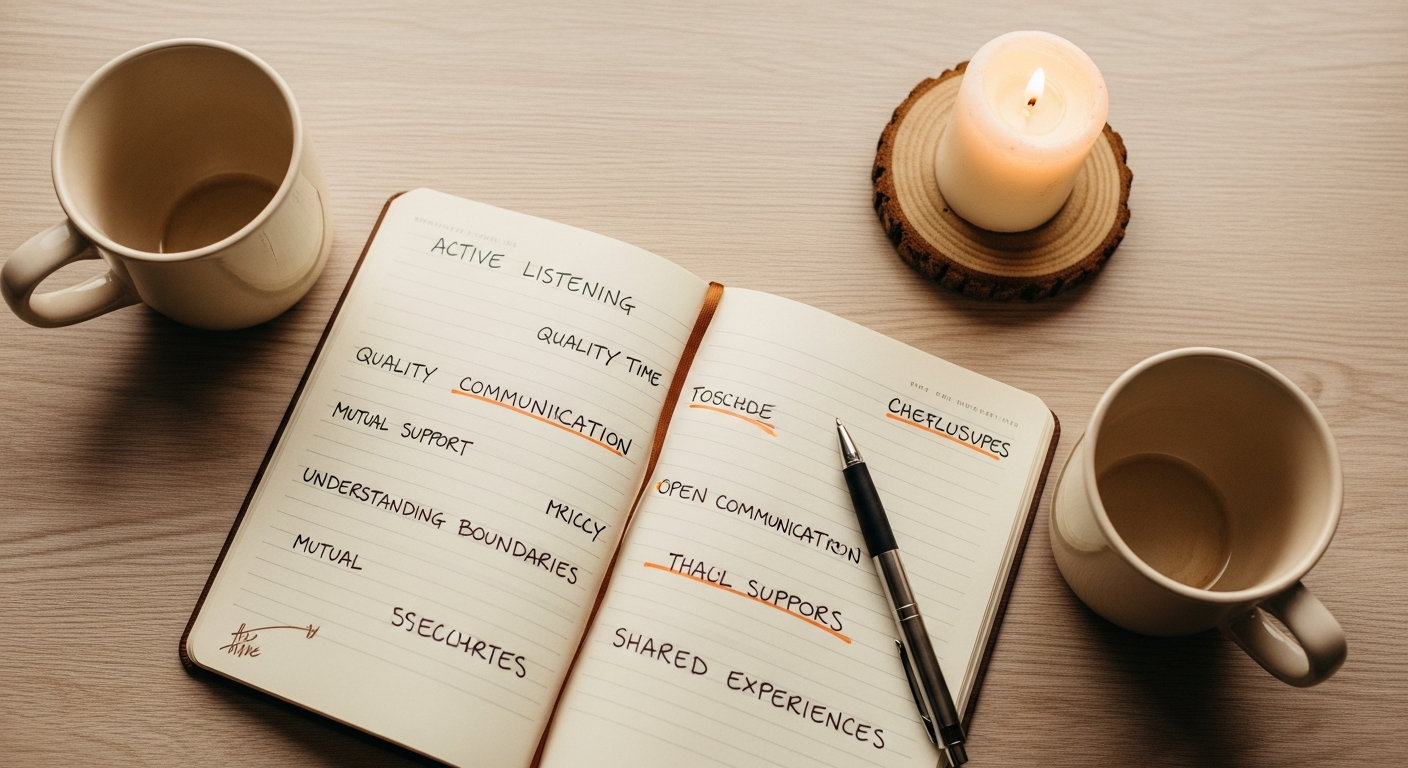 ACTIVE LISTENING
QUALITY TIME
QUALITY COMMUNICATION
MUTUAL SUPPORT
UNDERSTANDING BOUNDARIES
MRICCY
MUTUAL
TOSCHDE
CHEFLUSUPES
OPEN COMMUNICATION
SUPPORS
SHARED EXPERIENCES